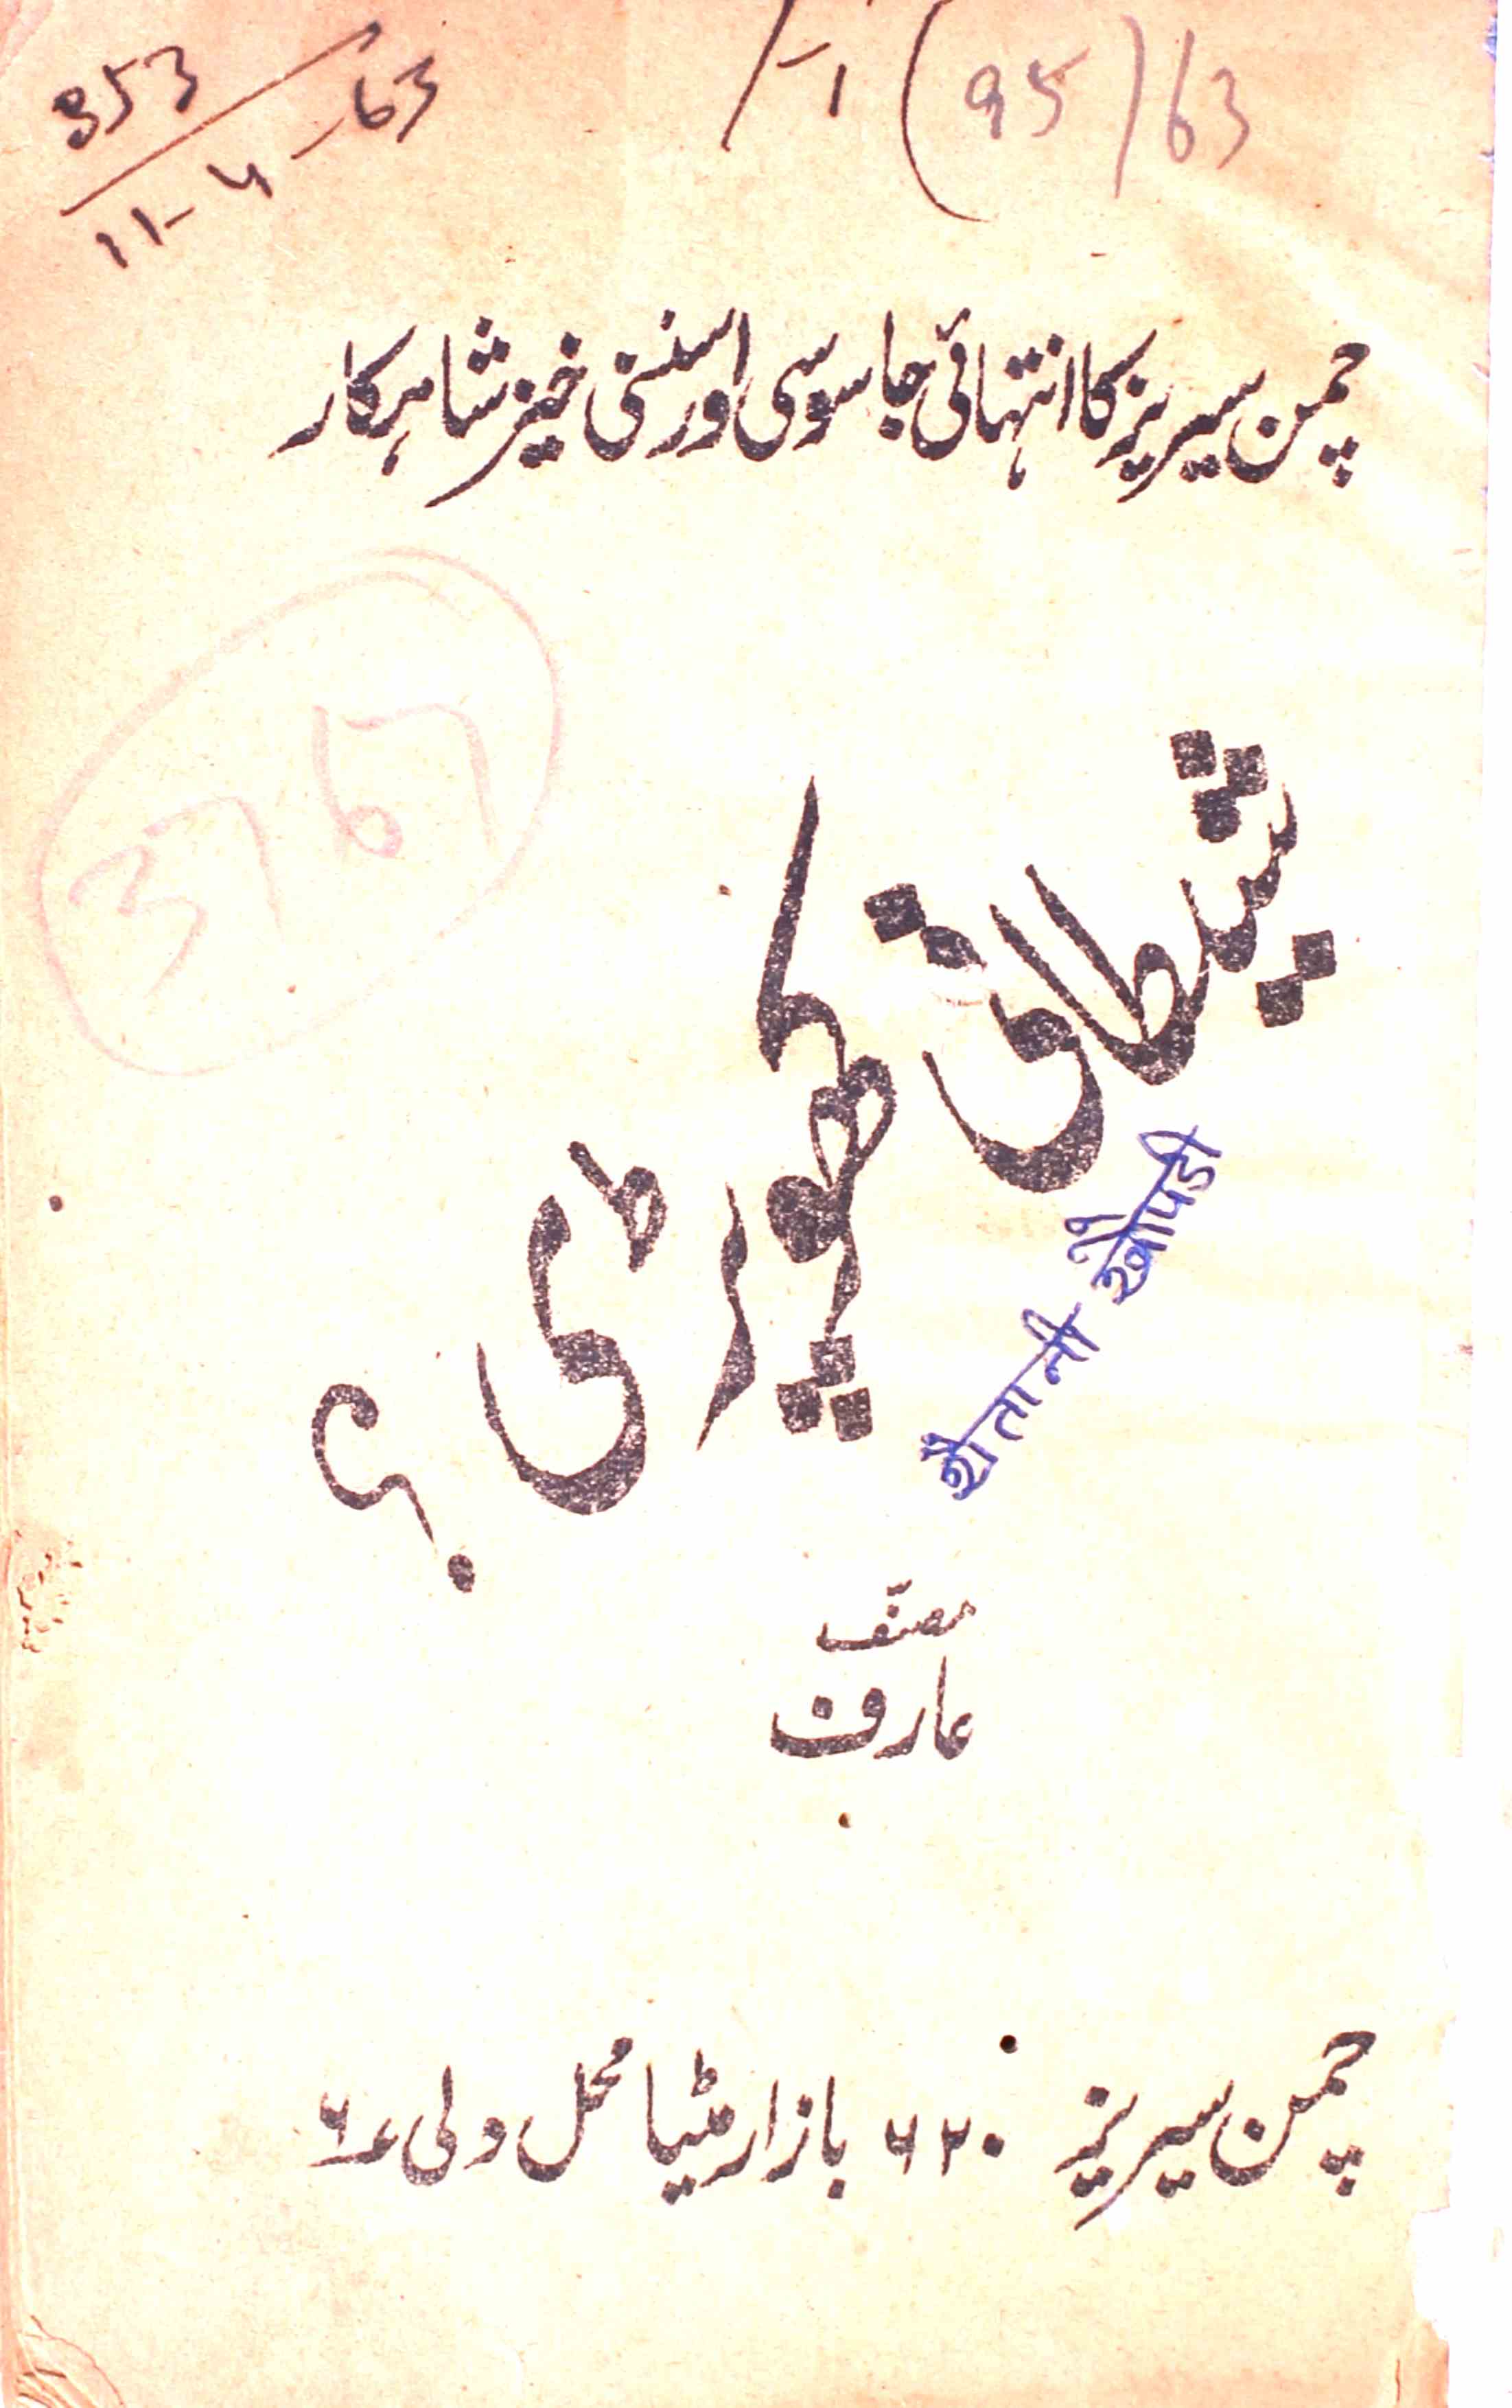 353/11-4-63
/-1 (95) 63
چمن سیریز کا انتہائی جاسوسی اور سنسنی خیز شاہکار
شیطانی
کھوپڑی ؟
शैतानी खोपडी
مصنّف
عارف
چمن سیریز ۶۲۰ بازار مٹیا محل دلی ۶